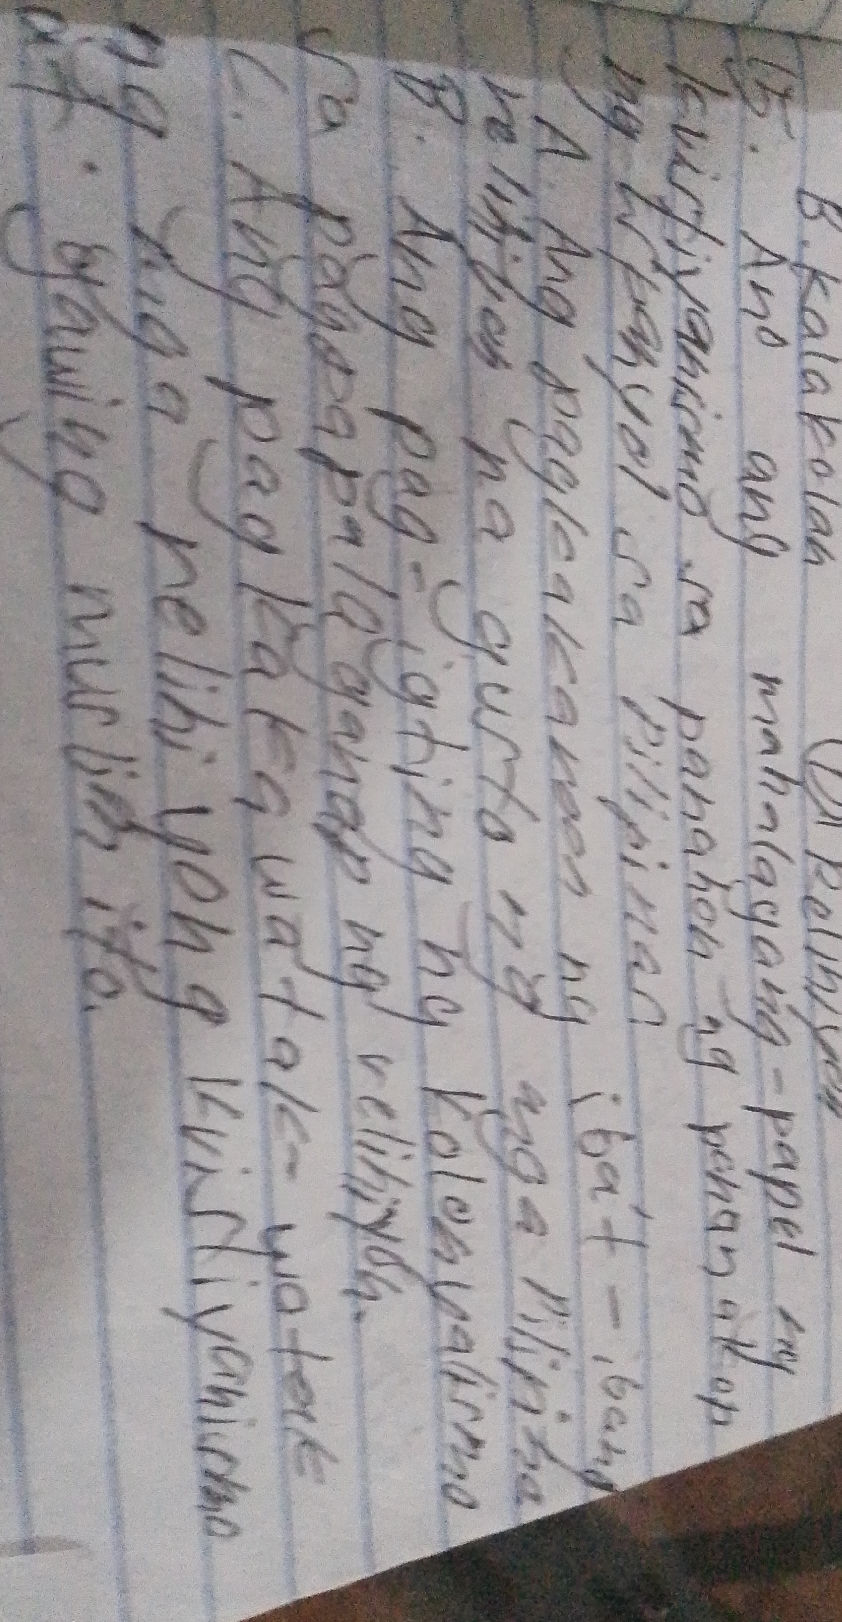 B. Kalakolan (D) Relihiyon
15. Ano ang mahalagang-papel ng
kristiyanismo sa panahon ng pananakop
ng Espanyol sa Pilipinas
A. Ang paglaganap ng iba't-ibang
relihiyon na gusto ng mga Pilipino
B. Ang pag-igting ng kolonyalismo
sa pagpapalaganap ng relihiyon.
C. Ang pagkaka watak-watak
ng mga relihiyong kristiyanismo
at gawing muslim ito.